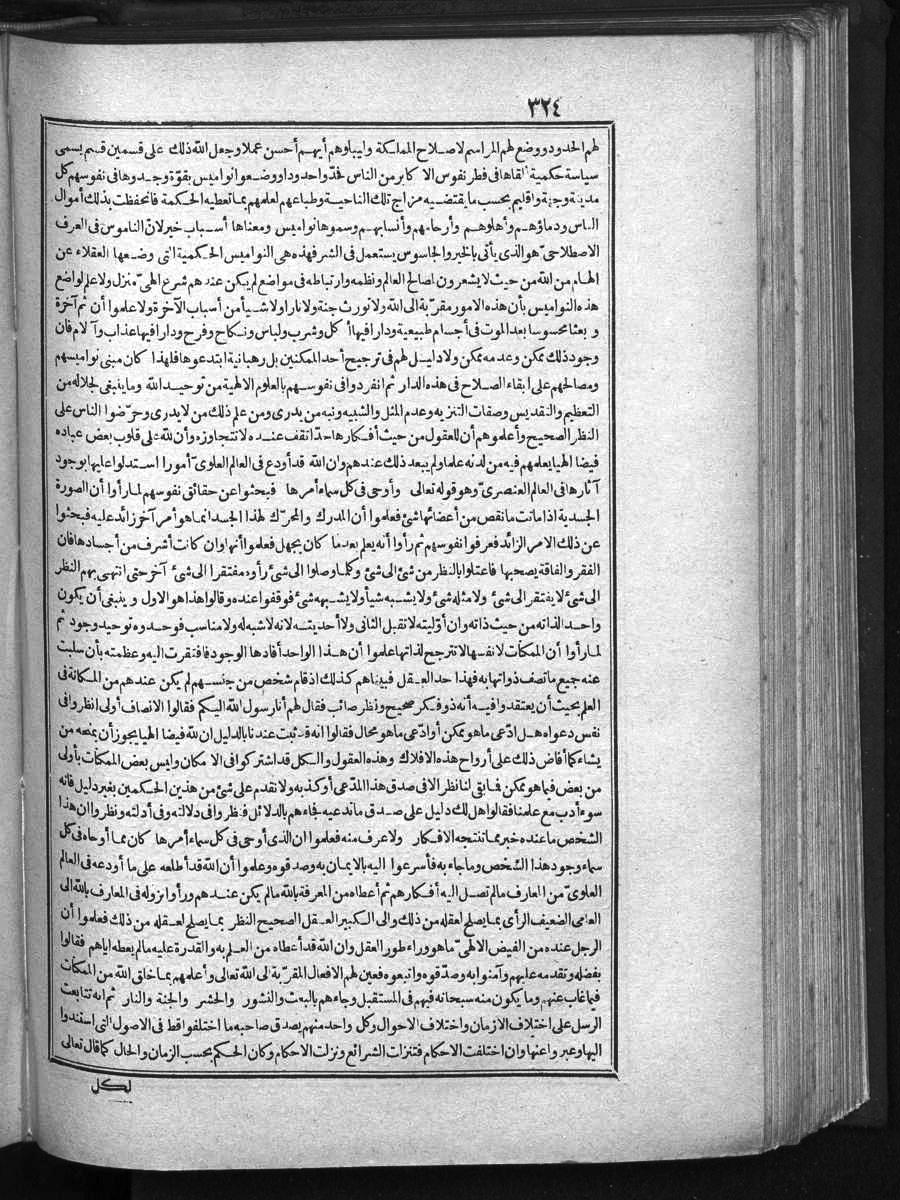 ٣٢٤
لهم الحدود ووضع لهم المراسم لاصلاح المملكة وليبلوهم أيهم أحسن عملا وجعل الله ذلك على قسمين قسم يسمى
سياسة حكمية ألقاها فى فطر نفوس الاكابر من الناس فحدّوا حدودا ووضعوا نواميس بقوّة وجدوها فى نفوسهم كل
مدينة وجهة واقليم بحسب ما يقتضيه مزاج تلك الناحية وطباعهم لعلمهم بما تعطيه الحكمة فانحفظت بذلك أموال
الناس ودماؤهم وأهلوهم وأرحامهم وأنسابهم وسموها نواميس ومعناها أسباب خير لانّ الناموس فى العرف
الاصطلاحىّ هو الذى يأتى بالخير والجاسوس يستعمل فى الشر فهذه هى النواميس الحكمية التى وضعها العقلاء عن
الهام من الله من حيث لا يشعرون لمصالح العالم ونظمه وارتباطه فى مواضع لم يكن عندهم شرع الهىّ منزل ولا علم لواضع
هذه النواميس بأن هذه الامور مقرّبة الى الله ولا تورث جنة ولا نارا ولا شيأ من أسباب الآخرة ولا علموا أن ثم آخرة
وبعثا محسوسا بعد الموت فى أجسام طبيعية ودارا فيها أكل وشرب ولباس ونكاح وفرح ودارا فيها عذاب وآلام فان
وجود ذلك ممكن وعدمه ممكن ولا دليل لهم فى ترجيح أحد الممكنين بل رهبانية ابتدعوها فلهذا كان مبنى نواميسهم
ومصالحهم على ابقاء الصلاح فى هذه الدار ثم انفردوا فى نفوسهم بالعلوم الالهية من توحيد الله وما ينبغى لجلاله من
التعظيم والتقديس وصفات التنزيه وعدم المثل والشبيه ونبه من يدرى ومن علم ذلك من لا يدرى وحرّضوا الناس على
النظر الصحيح وأعلموهم أن للعقول من حيث أفكارها حدّا تقف عنده لا تتجاوزه وأن لله على قلوب بعض عباده
فيضا الهيا يعلمهم فيه من لدنه علما ولم يبعد ذلك عندهم وان الله قد أودع فى العالم العلوىّ أمورا استدلوا عليها بوجود
آثارها فى العالم العنصرىّ وهو قوله تعالى وأوحى فى كل سماء أمرها فبحثوا عن حقائق نفوسهم لما رأوا أن الصورة
الجسدية اذا ماتت ما نقص من أعضائها شئ فعلموا أن المدرك والمحرّك لهذا الجسد انما هو أمر آخر زائد عليه فبحثوا
عن ذلك الامر الزائد فعرفوا نفوسهم ثم رأوا أنه يعلم بعد ما كان يجهل فعلموا أنها وان كانت أشرف من أجسادها فان
الفقر والفاقة يصحبها فاعتلوا بالنظر من شئ الى شئ وكلما وصلوا الى شئ رأوه مفتقرا الى شئ آخر حتى انتهى بهم النظر
الى شئ لا يفتقر الى شئ ولا مثله شئ ولا يشبه شيأ ولا يشبهه شئ فوقفوا عنده وقالوا هذا هو الاول وينبغى أن يكون
واحدا لذاته من حيث ذاته وان أوّليته لا تقبل الثانى ولا أحديته لانه لا شبه له ولا مناسب فوحدوه توحيد وجود ثم
لما رأوا أن الممكنات لانفسها لا تترجح لذاتها علموا أن هذا الواحد أفادها الوجود فافتقرت اليه وعظمته بأن سلبت
عنه جميع ما تصف ذواتها به فهذا حد العقل فبيناهم كذلك اذ قام شخص من جنسهم لم يكن عندهم من المكانة فى
العلم بحيث أن يعتقدوا فيه أنه ذو فكر صحيح ونظر صائب فقال لهم أنا رسول الله اليكم فقالوا الانصاف أولى انظروا فى
نفس دعواه هل ادّعى ما هو ممكن أو ادّعى ما هو محال فقالوا انه قد ثبت عندنا بالدليل ان لله فيضا الهيا يجوز أن يمنحه من
يشاء كما أفاض ذلك على أرواح هذه الافلاك وهذه العقول والكل قد اشتركوا فى الامكان وليس بعض الممكنات بأولى
من بعض فيما هو ممكن فما بقى لنا نظر الا فى صدق هذا المدّعى أو كذبه ولا نقدم على شئ من هذين الحكمين بغير دليل فانه
سوء أدب مع علمنا فقالوا هل لك دليل على صدق ما تدعيه فجاءهم بالدلائل فنظروا فى دلالته وفى أدلته ونظروا ان هذا
الشخص ما عنده خبر مما تنتجه الافكار ولا عرف منه فعلموا ان الذى أوحى فى كل سماء أمرها كان مما أوحاه فى كل
سماء وجود هذا الشخص وما جاء به فأسرعوا اليه بالايمان به وصدقوه وعلموا أن الله قد أطلعه على ما أودعه فى العالم
العلوىّ من المعارف ما لم تصل اليه أفكارهم ثم أعطاه من المعرفة بالله ما لم يكن عندهم ورأوا نزوله فى المعارف بالله الى
العامى الضعيف الرأى بما يصلح لعقله من ذلك والى الكبير العقل الصحيح النظر بما يصلح لعقله من ذلك فعلموا أن
الرجل عنده من الفيض الالهىّ ما هو وراء طور العقل وان الله قد أعطاه من العلم به والقدرة عليه ما لم يعطه اياهم فقالوا
بفضله وتقدمه عليهم وآمنوا به وصدّقوه واتبعوه فعين لهم الافعال المقرّبة الى الله تعالى وأعلمهم بما خلق الله من الممكنات
فيما غاب عنهم وما يكون منه سبحانه فيهم فى المستقبل وجاءهم بالبعث والنشور والحشر والجنة والنار ثم انه تتابعت
الرسل على اختلاف الازمان واختلاف الاحوال وكل واحد منهم يصدق صاحبه ما اختلفوا قط فى الاصول التى استندوا
اليها وعبروا عنها وان اختلفت الاحكام فتنزلت الشرائع ونزلت الاحكام وكان الحكم بحسب الزمان والحال كما قال تعالى
لكل